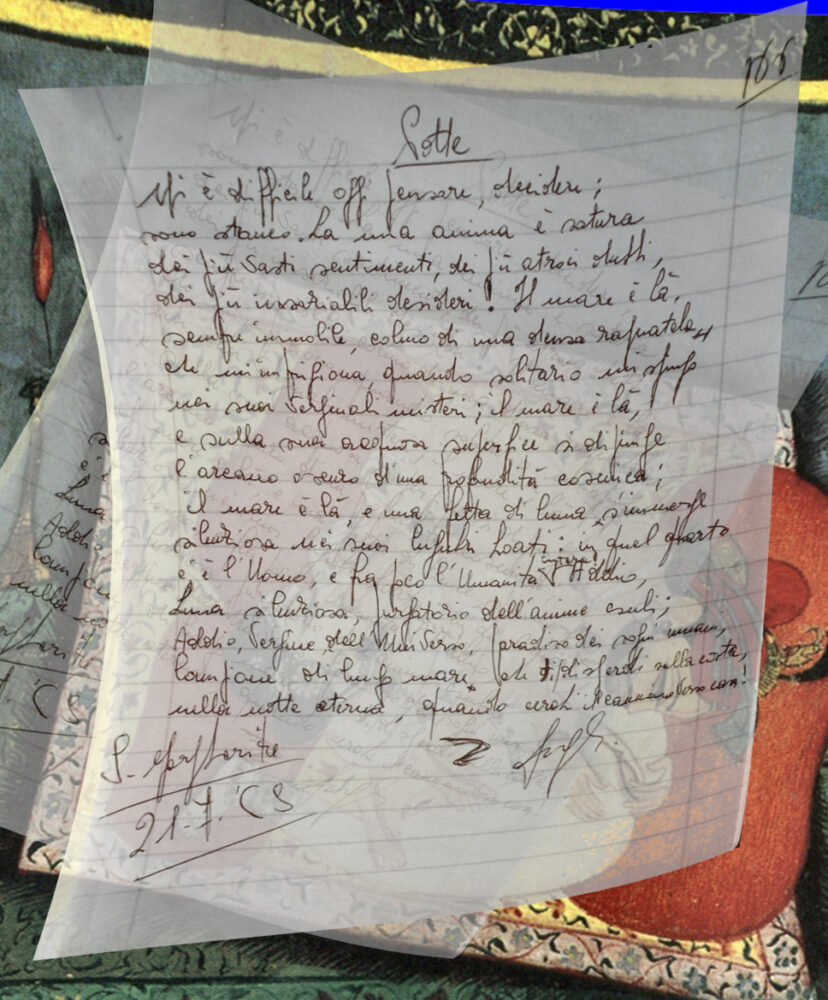 166
Notte
Mi è difficile oggi pensare, decidere;
sono stanco. La mia anima è satura
dei più vasti sentimenti, dei più atroci dubbi,
dei più insaziabili desideri! Il mare è là,
sempre immobile, colmo di una densa ragnatela
che mi imprigiona, quando solitario mi spingo
nei suoi verginali misteri; il mare è là,
e sulla sua acquosa superfice si dipinge
l'arcano oscuro d'una profondità cosmica;
il mare è là, e una fetta di luna s'immerge
silenziosa nei suoi lugubri boati: in quel quarto
c'è l'Uomo, e fra poco l'Umanità intera! Addio,
Luna silenziosa, purgatorio dell'anime esuli;
Addio, Vergine dell'Universo, paradiso dei sogni umani,
lampione di lungo mare, che ti disperdi sulla costa,
nella notte eterna, quando cerchi il cammino verso casa!
S. Margherita
21.7.'69